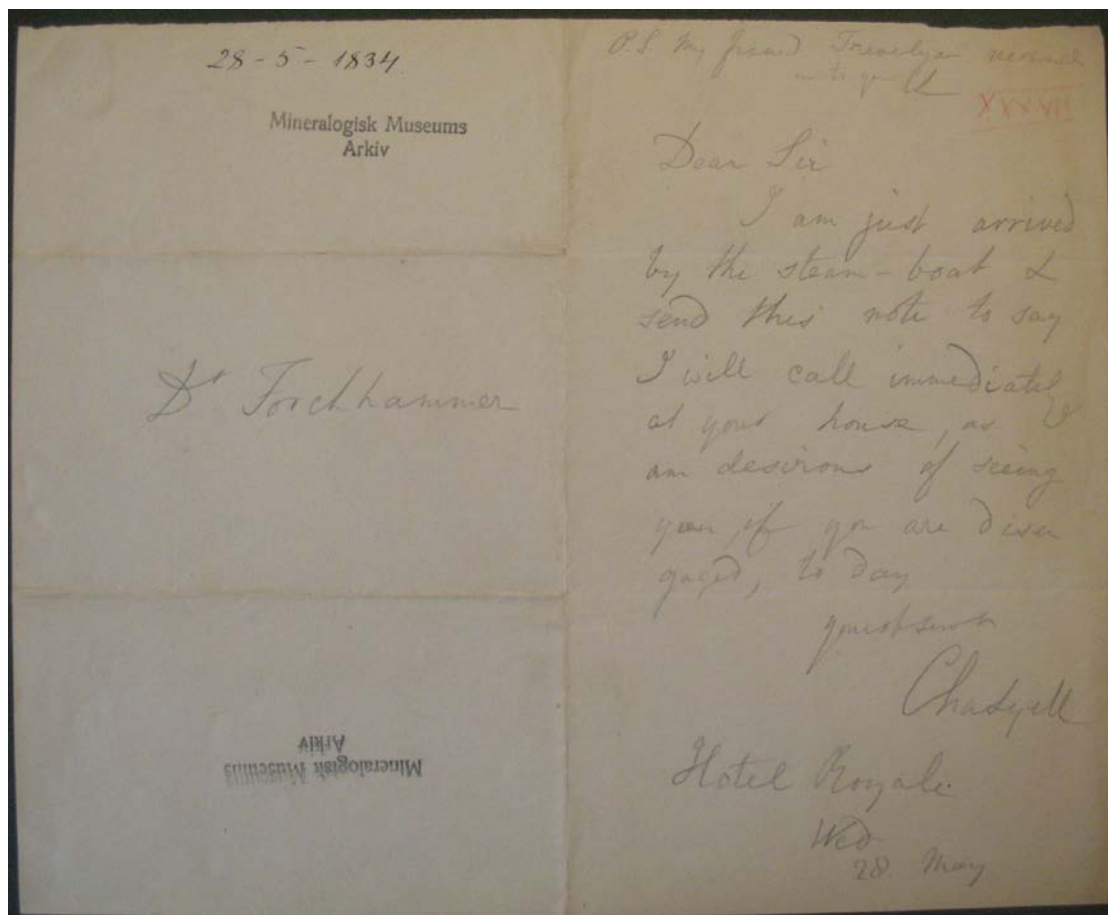 28-5-1834
Mineralogisk Museums
Arkiv
Dr Forchhammer
Mineralogisk Museums
Arkiv
P.S. My friend Trevelyan
to you CL
XXXVII
Dear Sir
I am just arrived
by the steam-boat &
send this note to say
I will call immediately
at your house, as I
am desirous of seeing
you, if you are disen
gaged, to day
your obt servt
Cha Lyell
Hotel Royale
Wed
28 May